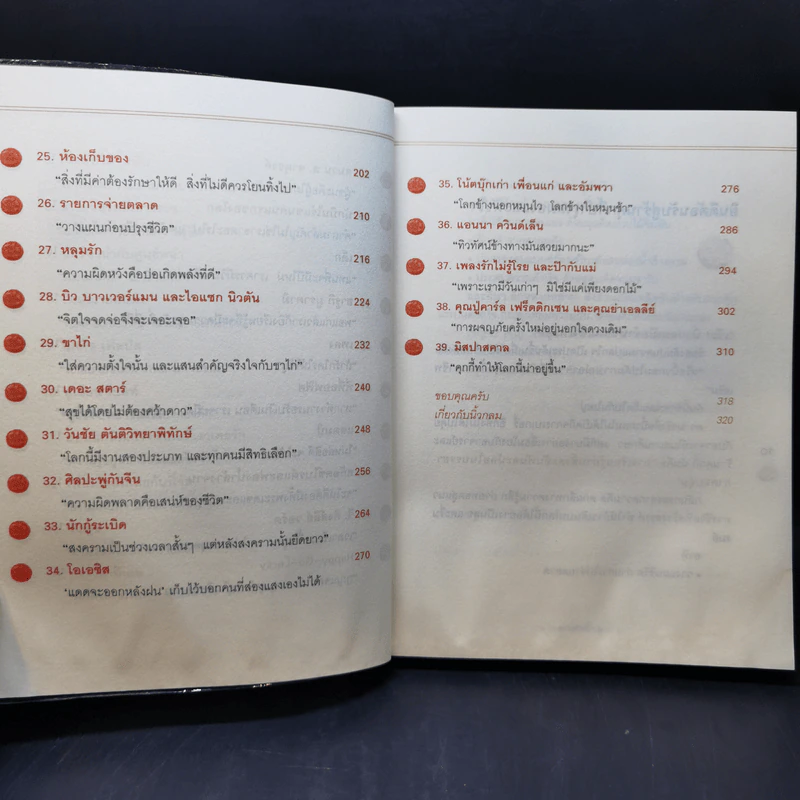 25. ห้องเก็บของ 202
"สิ่งที่มีค่าต้องรักษาให้ดี สิ่งที่ไม่ดีควรโยนทิ้งไป"
26. รายการจ่ายตลาด 210
"วางแผนก่อนปรุงชีวิต"
27. หลุมรัก 216
"ความผิดหวังคือบ่อเกิดพลังที่ดี"
28. บิว บาวเวอร์แมน และไอแซก นิวตัน 224
"จิตใจจดจ่อจึงจะเจอะเจอ"
29. ขาไก่ 232
"ใส่ความตั้งใจนั้น และแสนสำคัญจริงใจกับขาไก่"
30. เดอะ สตาร์ 240
"สุขได้โดยไม่ต้องคว้าดาว"
31. วันชัย ตันติวิทยาพิทักษ์ 248
"โลกนี้มีงานสองประเภท และทุกคนมีสิทธิเลือก"
32. ศิลปะพู่กันจีน 256
"ความผิดพลาดคือเสน่ห์ของชีวิต"
33. นักกู้ระเบิด 264
"สงครามเป็นช่วงเวลาสั้นๆ แต่หลังสงครามนั้นยืดยาว"
34. โอเอซิส 270
'แดดจะออกหลังฝน' เก็บไว้บอกคนที่ส่องแสงเองไม่ได้
35. โน้ตบุ๊กเก่า เพื่อนแก่ และอัมพวา 276
"โลกข้างนอกหมุนไว โลกข้างในหมุนช้า"
36. แอนนา ควินด์เล็น 286
"ทิวทัศน์ข้างทางมันสวยมากนะ"
37. เพลงรักไม่รู้โรย และป๊ากับแม่ 294
"เพราะเรามีวันเก่าๆ มิใช่มีแค่เพียงดอกไม้"
38. คุณปู่คาร์ล เฟร็ดดิกเซน และคุณย่าเอลลีย์ 302
"การผจญภัยครั้งใหม่อยู่นอกใจดวงเดิม"
39. มิสปาสคาล 310
"คุกกี้ทำให้โลกนี้น่าอยู่ขึ้น"
ขอบคุณครับ 318
เกี่ยวกับนิ้วกลม 320